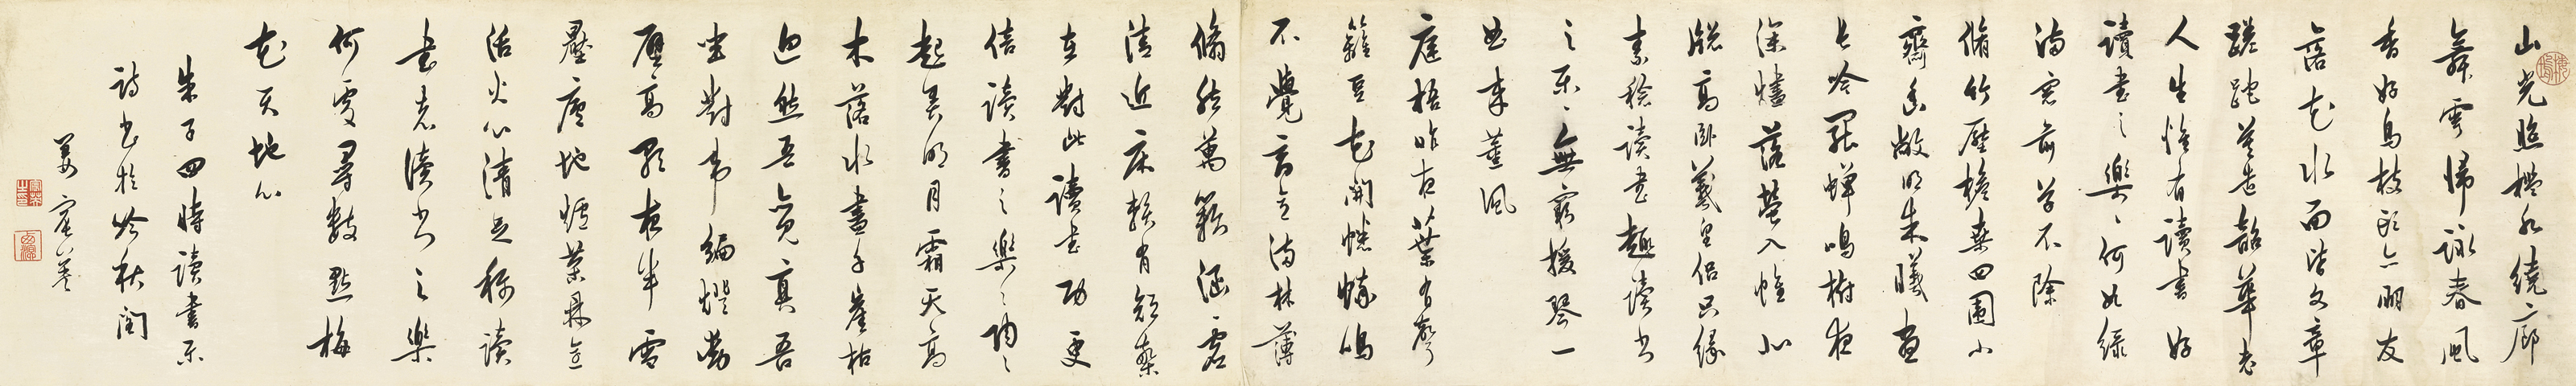 山光照檻水繞廊
舞雩歸詠春風
香好鳥枝頭亦朋友
落花水面皆文章
蹉跎莫遣韶華老
人生惟有讀書好
讀書之樂〻何如綠
滿窗前草不除
脩竹壓檐桑四圍小
齋幽敞明朱曦晝
長吟罷蟬鳴樹夜
深燼落螢入幃北
牕高臥羲皇侶只緣
素稔讀書趣讀書
之樂〻無窮援琴一
曲來薰風
庭梧昨夜葉有聲
籬豆花開蟋蟀鳴
不覺商意滿林薄
脩然萬籟涵虛
清近床賴有短檠
在對此讀書功更
倍讀書之樂〻陶〻
起弄明月霜天高
木落水盡千崖枯
迥然吾亦見真吾
坐對韋編燈動
壁高歌夜半雪
壓廬地爐茶鼎烹
活火心清足稱讀
書者讀書之樂
何處尋數點梅
花天地心
朱子四時讀書樂
詩書於吟秋閣
姜宸英